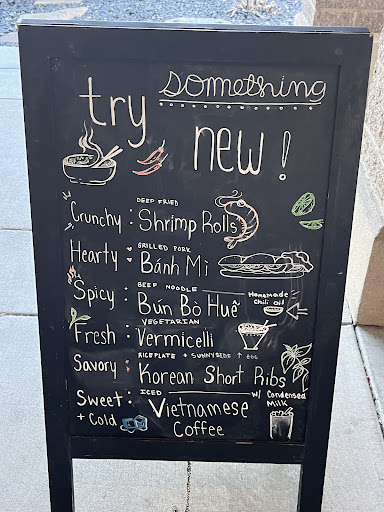 try something
new!
DEEP FRIED
Crunchy: Shrimp Rolls
GRILLED PORK
Hearty: Bánh Mì
BEEF NOODLE
Spicy: Bún Bò Huế
Homemade
Chili Oil
VEGETARIAN
Fresh: Vermicelli
RICEPLATE + SUNNYSIDE ↑ EGG
Savory: Korean Short Ribs
ICED
Sweet: Vietnamese
+ Cold Coffee
w/ Condensed
Milk